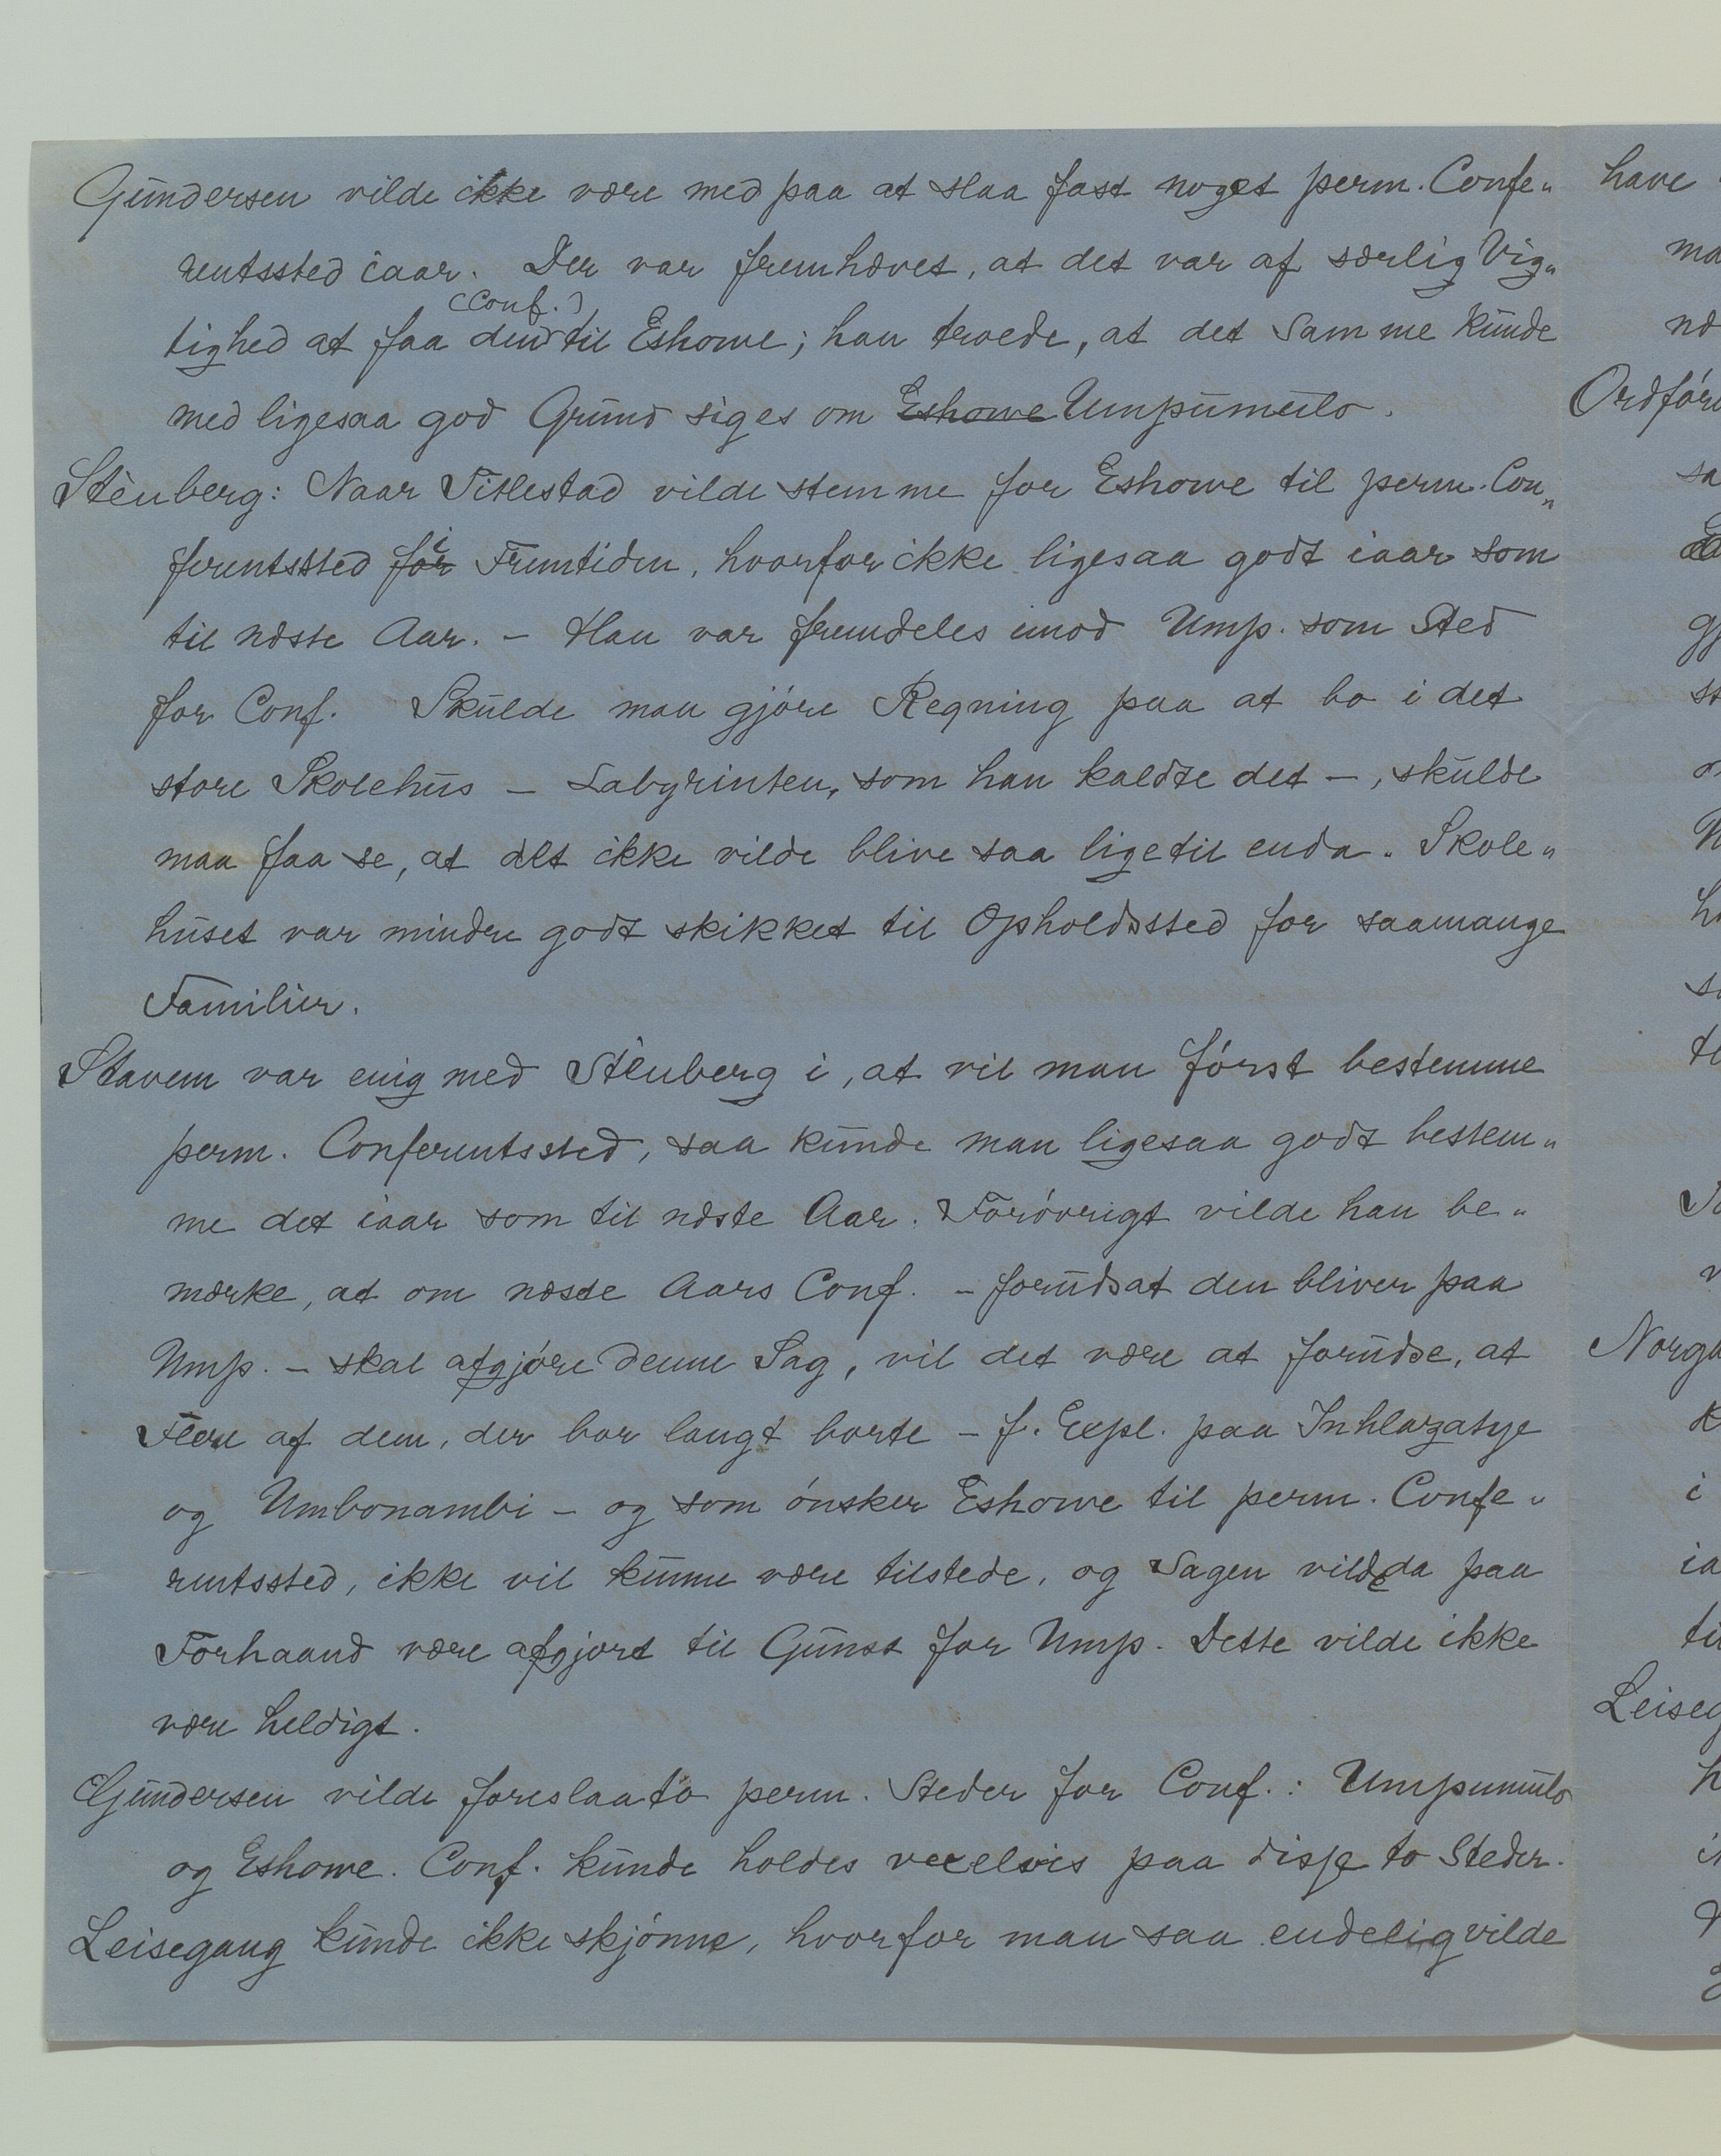 Gundersen vilde ikke være med paa at slaa fast noget perm. Confe„
rentssted iaar. Der var fremhævet, at det var af særlig Vig„
(Conf.)
tighed at faa den til Eshowe; han troede, at det samme kunde
med ligesaa god Grund siges om Eshowe Umpumulo.
Stenberg: Naar Titlestad vilde stemme for Eshowe til perm. Con„
ferentssted for i Fremtiden, hvorfor ikke ligesaa godt iaar som
til næste Aar. – Han var fremdeles imod Ump. som Sted
for Conf. Skulde man gjöre Regning paa at bo i det
store Skolehus – Labyrinten, som han kaldte det –, skulde
man faa se, at det ikke vilde blive saa ligetil enda. Skole„
huset var mindre godt skikket til Opholdssted for saamange
Familier.
Stavem var enig med Stenberg i, at vil man först bestemme
perm. Conferentssted, saa kunde man ligesaa godt bestem„
me det iaar som til næste Aar. Foróvrigt vilde han be„
mærke, at om næste Aars Conf. – forudsat den bliver paa
Ump. – skal afgjöre denne Sag, vil det være at forudse, at
Flere af dem, der bor langt borte – f. Expl. paa Inhlazatye
og Umbonambi – og som ónsker Eshowe til perm. Confe„
rentssted, ikke vil kunne være tilstede, og Sagen vilde da paa
Forhaand være afgjort til Gunst for Ump. Dette vilde ikke
være heldigt.
Gundersen vilde foreslaa to perm. Steder for Conf.: Umpumulo
og Eshowe. Conf. kunde holdes vexelvis paa disse to Steder.
Leisegang kunde ikke skjónne, hvorfor man saa endelig vilde
have
Ordföre
Leiseg